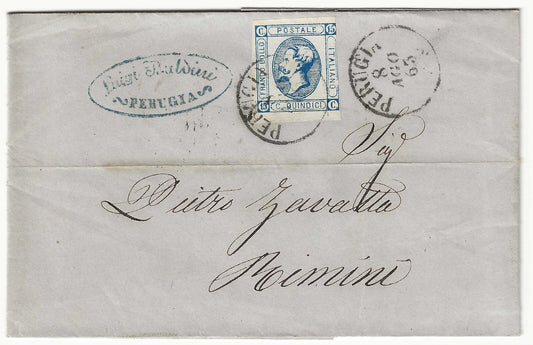 Luigi Baldini
PERUGIA
POSTALE
FRANCO BOLLO
ITALIANO
C. QUINDICI
C 15
15 C
PERUGIA
PERUGIA
8
AGO
63
Sig
Pietro Zavatta
Rimini